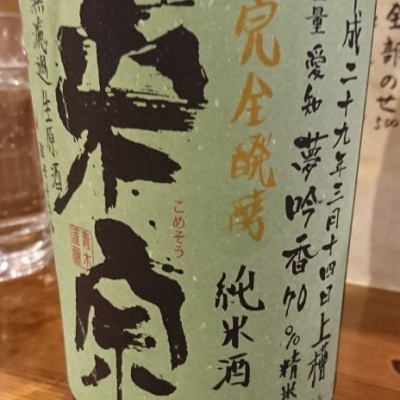 平成二十九年三月十四日上槽
量 愛知 夢吟香70%精米
完全醗酵
純米酒
こめそう
米宗
青木
無濾過 生原酒
全部のせ
500